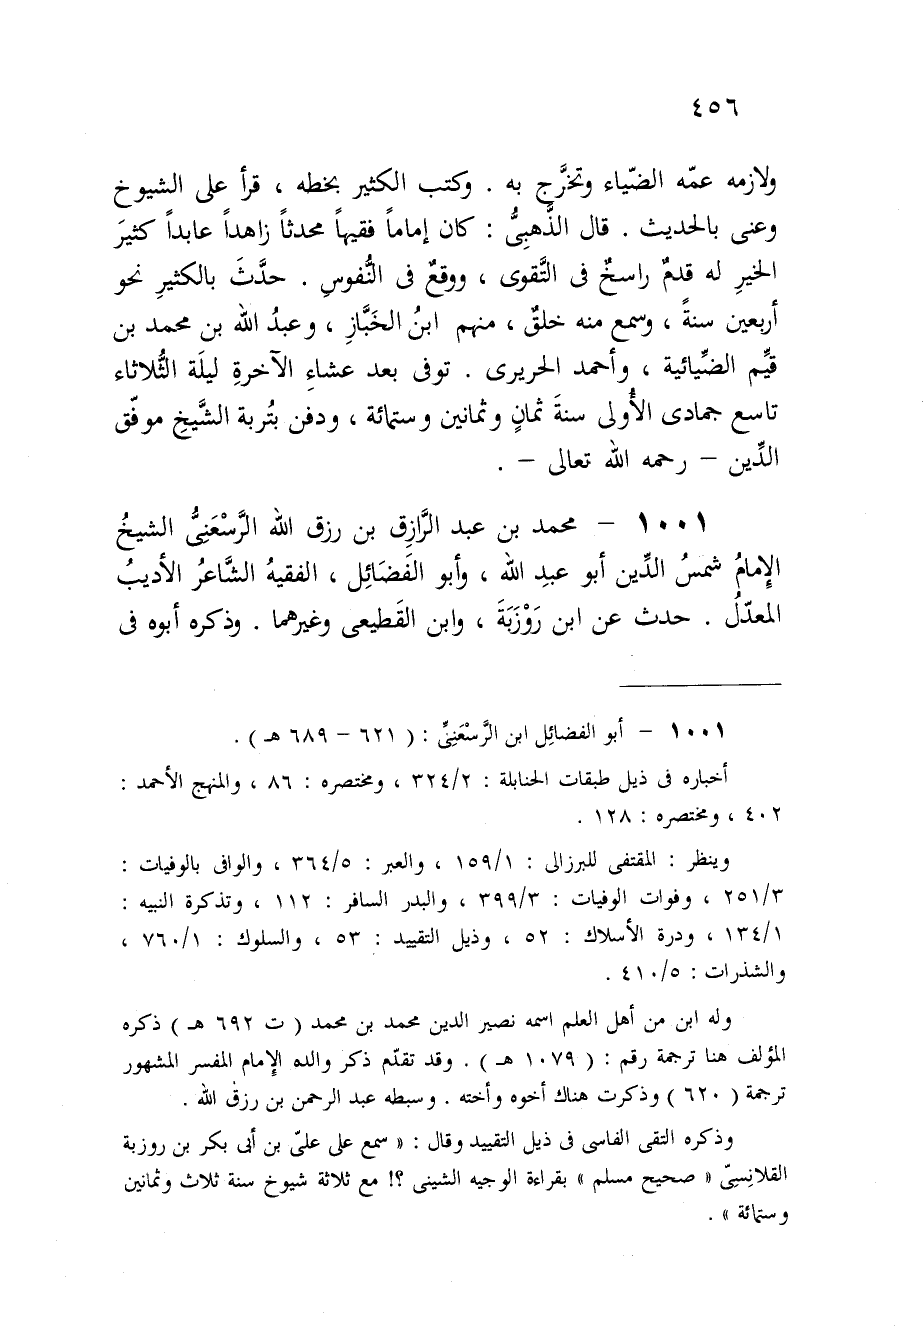 ٤٥٦
ولازمه عمّه الضّياء وتخرَّج به . وكتب الكثير بخطه ، قرأ على الشيوخ
وعنى بالحديث . قال الذَّهبِىُّ : كان إماماً فقيهاً محدثاً زاهداً عابداً كثيرَ
الخيرِ له قدمٌ راسخٌ فى التَّقوى ، ووقعٌ فى النُّفوسِ . حدَّثَ بالكثيرِ نحو
أربعين سنةً ، وسمع منه خلقٌ ، منهم ابنُ الخَبَّازِ ، وعبدُ الله بن محمد بن
قيِّم الضِّيائية ، وأحمد الحريرى . توفى بعد عشاءِ الآخرةِ ليلَة الثُّلاثاء
تاسع جمادى الأُولى سنةَ ثمانٍ وثمانين وستمائة ، ودفن بتُربة الشَّيخِ موفّق
الدِّين – رحمه الله تعالى – .
١٠٠١ – محمد بن عبد الرَّازِق بن رزق الله الرَّسْعَنِىُّ الشيخُ
الإمامُ شمسُ الدِّين أبو عبدِ الله ، وأبو الفَضَائِل ، الفقيهُ الشَّاعرُ الأديبُ
المعدّلُ . حدث عن ابن رَوْزَبَةَ ، وابن القَطيعى وغيرهما . وذكره أبوه فى
١٠٠١ – أبو الفضائِل ابن الرَّسْعَنِىِّ : ( ٦٢١ – ٦٨٩ هـ ) .
أخباره فى ذيل طبقات الحنابلة : ٣٢٤/٢ ، ومختصره : ٨٦ ، والمنهج الأحمد :
٤٠٢ ، ومختصره : ١٢٨ .
وينظر : المقتفى للبرزالى : ١٥٩/١ ، والعبر : ٣٦٤/٥ ، والوافى بالوفيات :
٢٥١/٣ ، وفوات الوفيات : ٣٩٩/٣ ، والبدر السافر : ١١٢ ، وتذكرة النبيه :
١٣٤/١ ، ودرة الأسلاك : ٥٢ ، وذيل التقييد : ٥٣ ، والسلوك : ٧٦٠/١ ،
والشذرات : ٤١٠/٥ .
وله ابن من أهل العلم اسمه نصير الدين محمد بن محمد ( ت ٦٩٢ هـ ) ذكره
المؤلف هنا ترجمة رقم : ( ١٠٧٩ هـ ) . وقد تقدّم ذكر والده الإمام المفسر المشهور
ترجمة ( ٦٢٠ ) وذكرت هناك أخوه وأخته . وسبطه عبد الرحمن بن رزق الله .
وذكره التقى الفاسى فى ذيل التقييد وقال : « سمع على علىّ بن أبى بكر بن روزبة
القلانِسِىّ « صحيح مسلم » بقراءة الوجيه الشينى ؟! مع ثلاثة شيوخ سنة ثلاث وثمانين
وستمائة » .